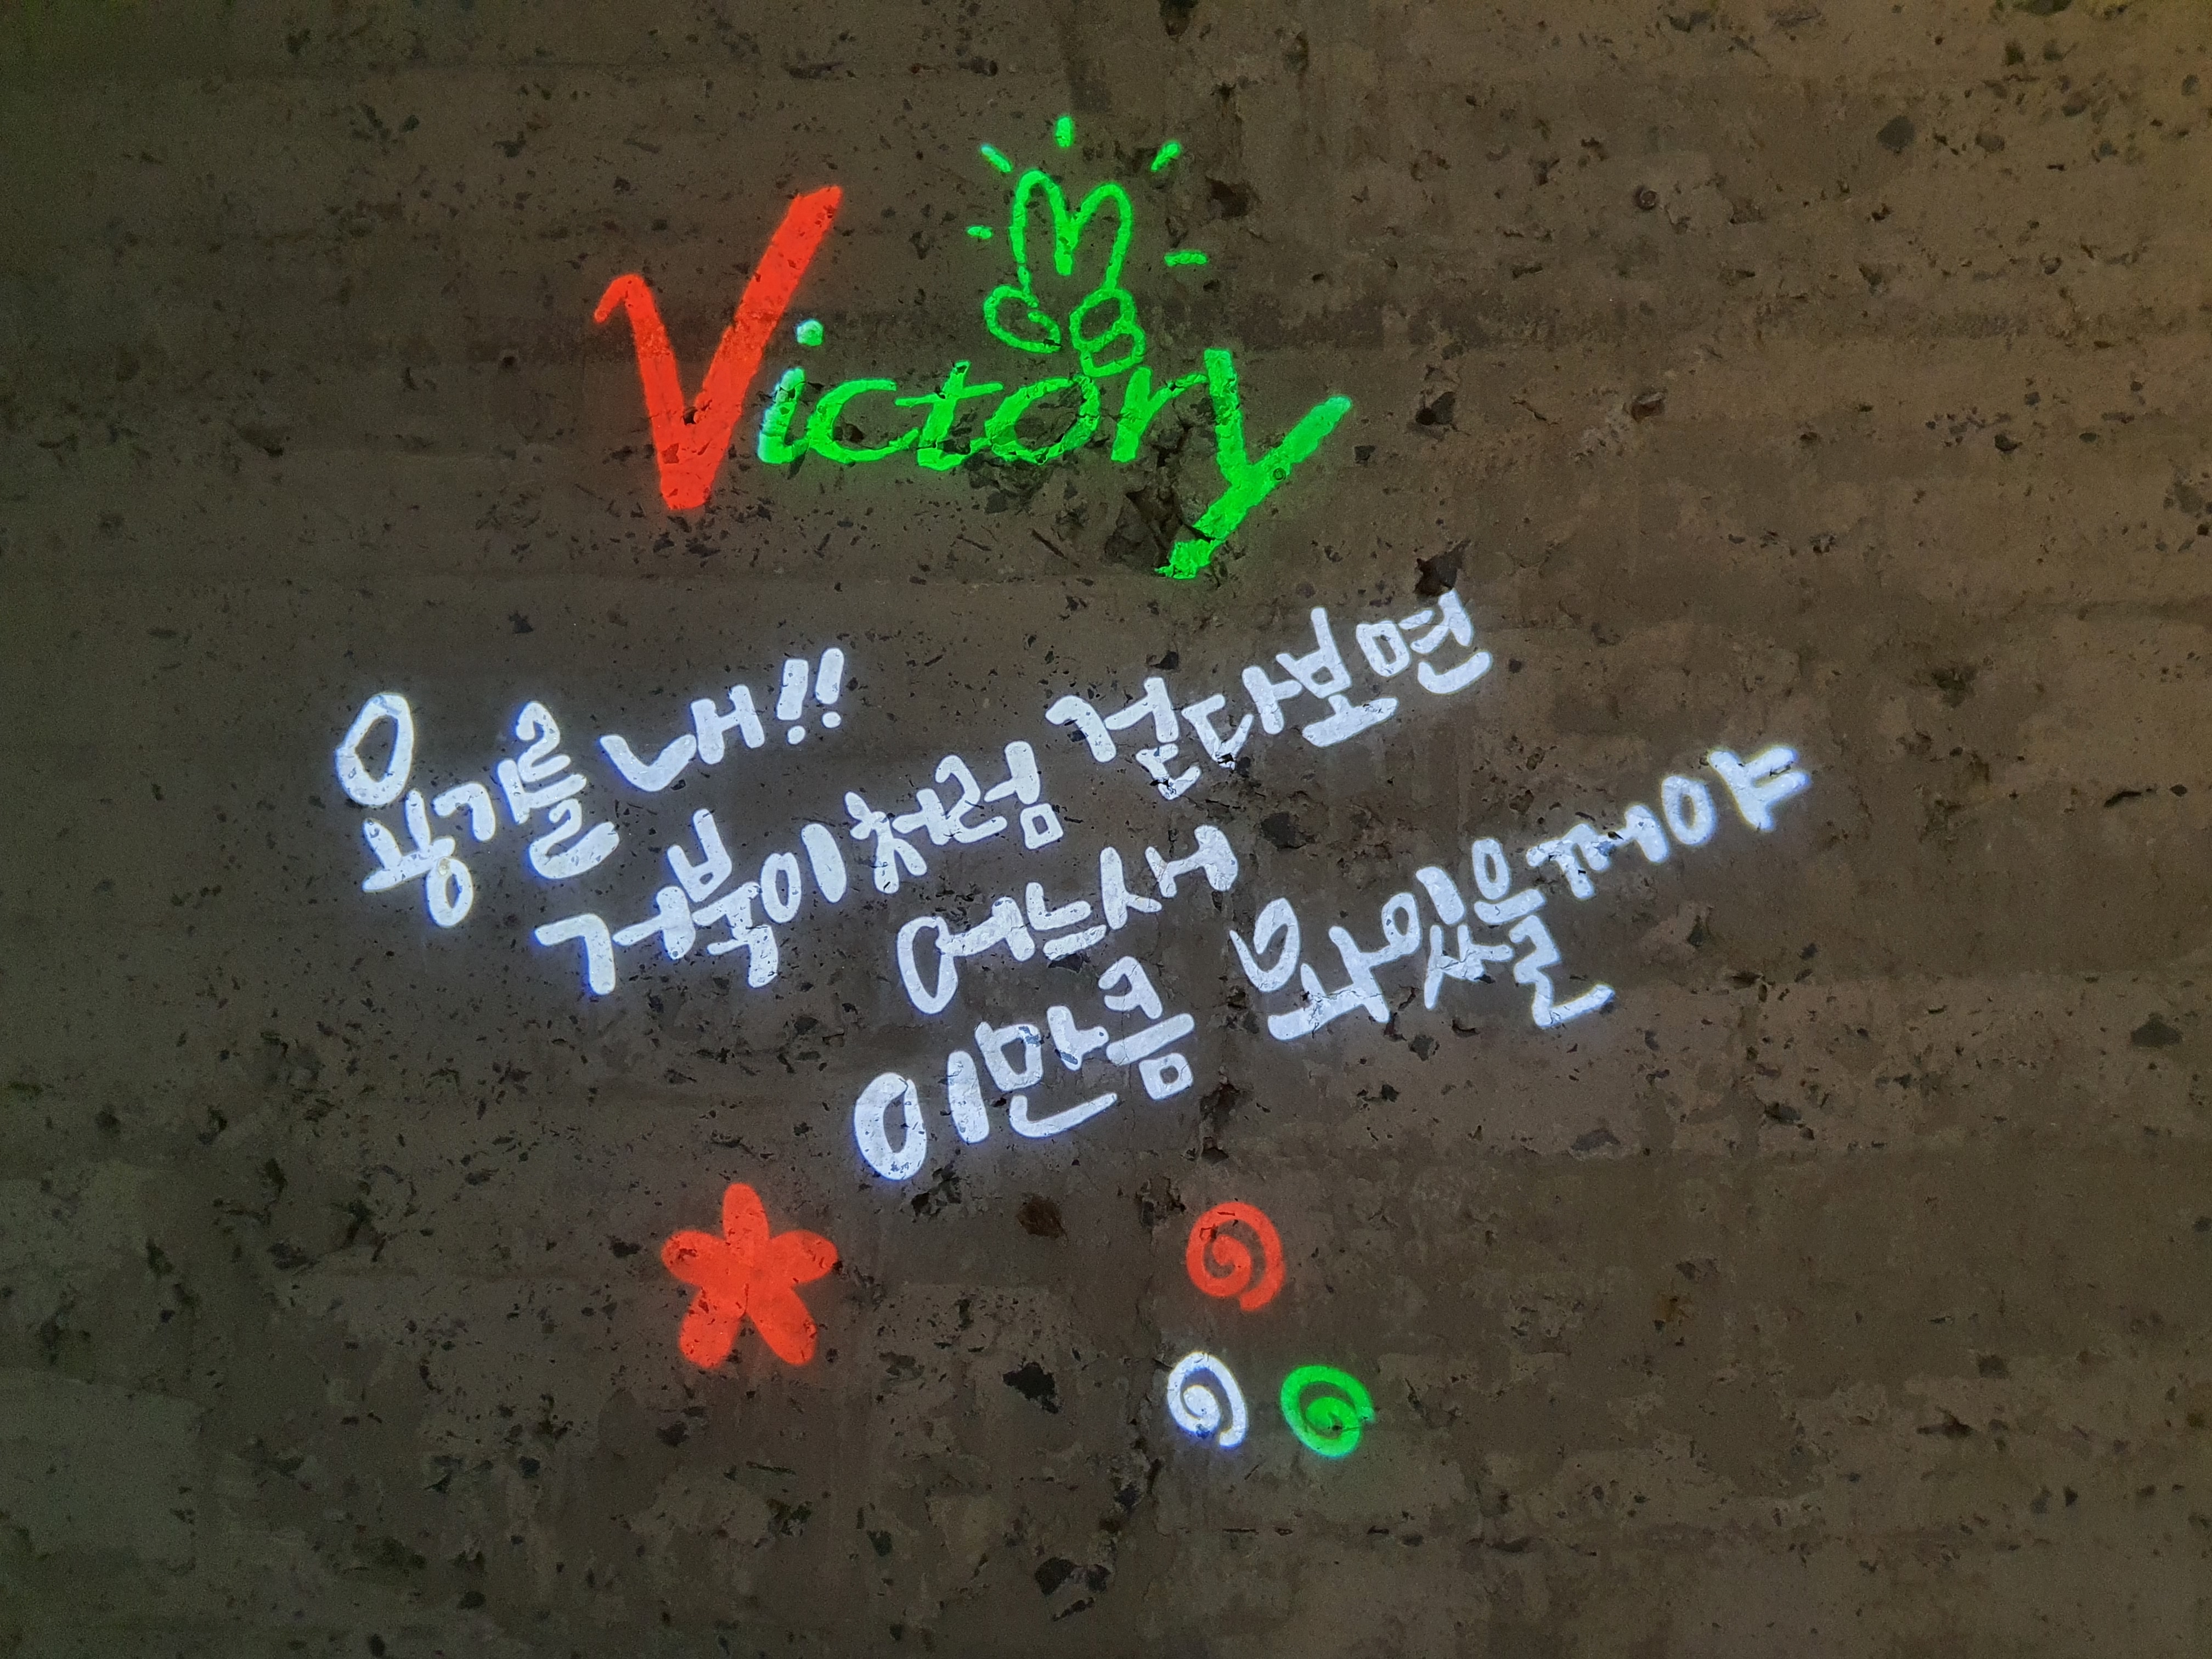 Victory
용기를 내!!
거북이처럼 걷다보면
어느새
이만큼 와있을꺼야